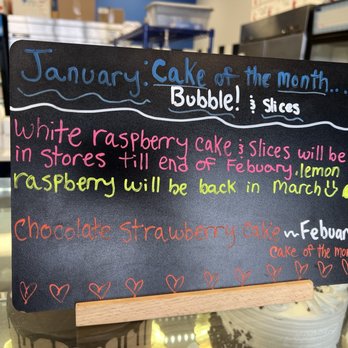 January: Cake of the month...
Bubble! & Slices
White raspberry cake & slices will be
in stores till end of Febuary. lemon
raspberry will be back in March
Chocolate Strawberry Cake ~ Febuar
Cake of the mon